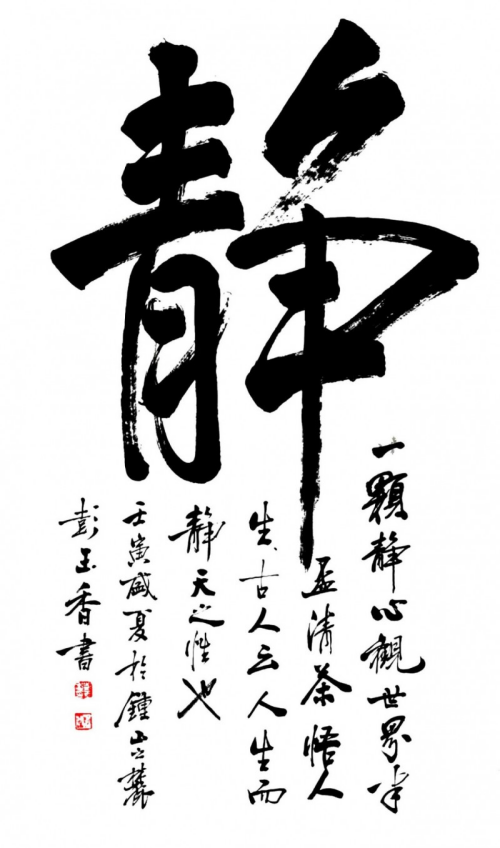 静
一颗静心觀世界半
盃清茶悟人
生古人云人生而
静天之性也
壬寅盛夏於鍾山之麓
彭玉香書